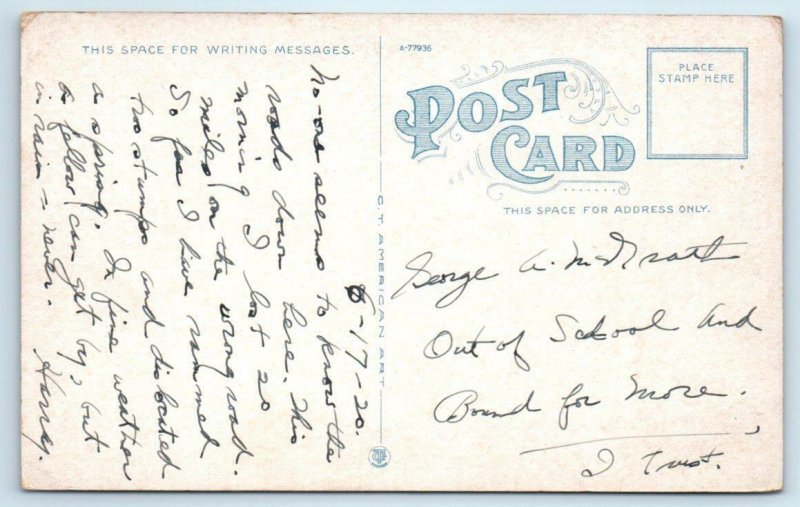 THIS SPACE FOR WRITING MESSAGES.
A-77936
POST CARD
PLACE
STAMP HERE
THIS SPACE FOR ADDRESS ONLY.
C.T. AMERICAN ART
8-17-20.
No-one seems to know the
roads down here. This
morning I lost 20
miles on the wrong road.
So far I have rammed
two stumps and dislocated
a spring. In fine weather
a fellow can get by, but
in rain - never. Harry.
George A. McGrath
Out of School And
Bound for More.
I Trust.